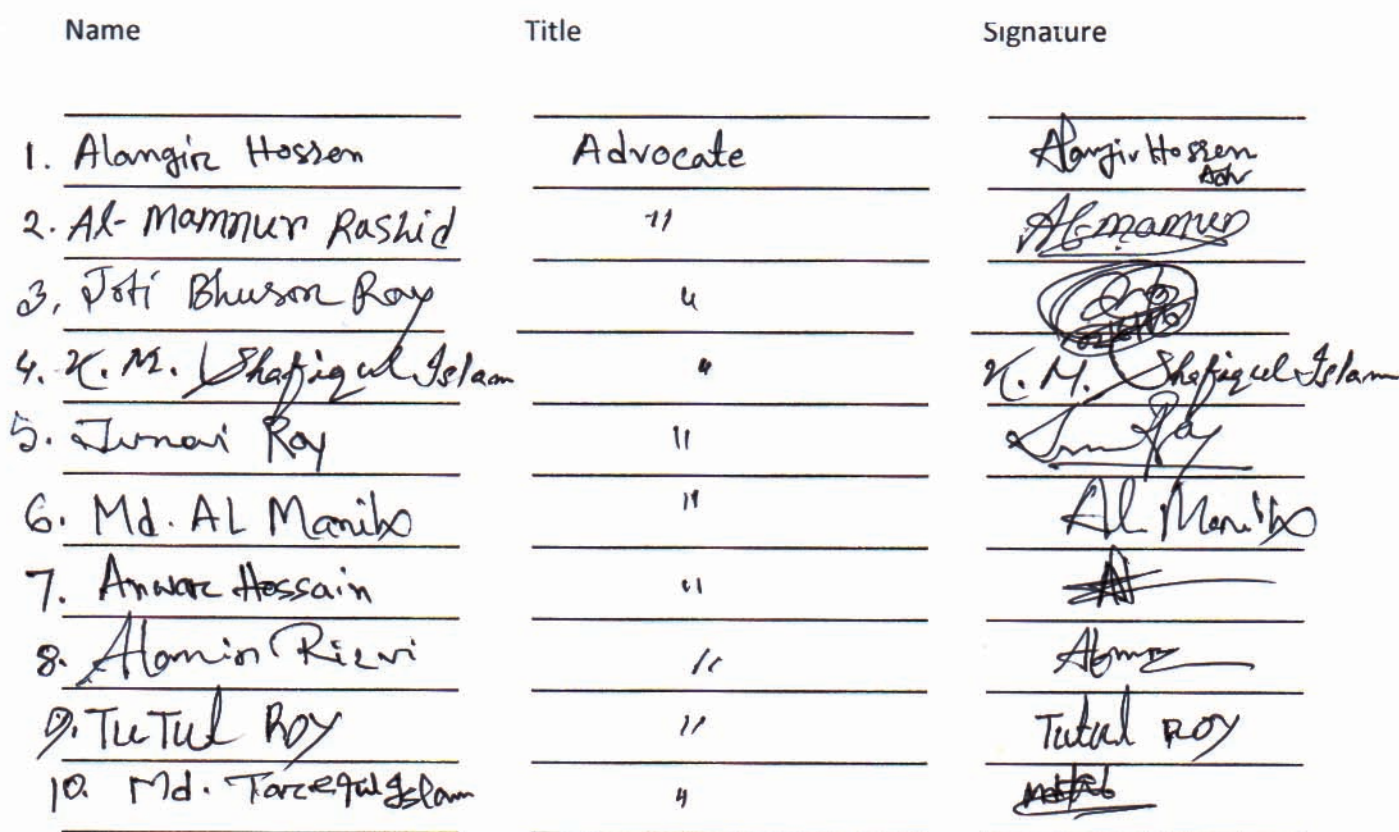 Name Title Signature
1. Alangir Hossen Advocate Alangir Hossen Adv
2. Al- Mamnur Rashid " Al-mamun
3. Joti Bhuson Roy "
4. K. M. Shafiqul Islam " K. M. Shafiqul Islam
5. Roy " Roy
6. Md. AL Manibo " Al Manibo
7. Anwar Hossain "
8. Alamin Rizvi "
9. TuTul ROY " Tutul ROY
10. Md. Islam "